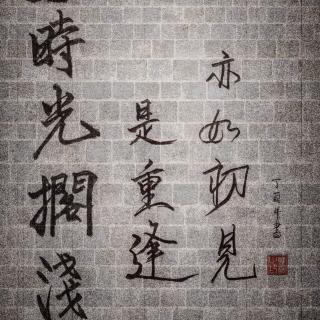 時光擱淺
是重逢
亦如初見
丁酉